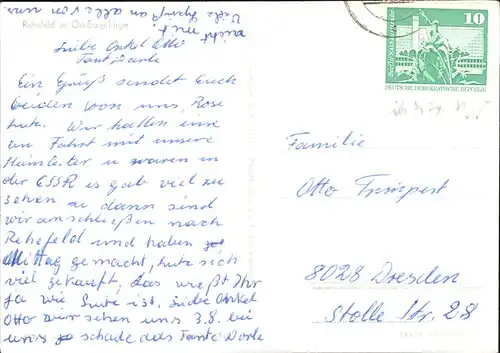 Rehefeld im Ost-Erzgebirge
macht mit.
Viele Grüße an alle von uns
Liebe Onkel Otto
Tante Dorle
Ein Gruß sendet Euch
beiden von uns, Rose
Lute. Wir hatten eine
Fahrt mit unsere
u waren in
der ČSSR es gab viel zu
sehen ja dann sind
wir anschließen nach
Rehefeld und haben
Mittag gemacht, Lute sich
viel gekauft, das wießt Ihr
ja wie Lute ist. Liebe Onkel
Otto wir sehen uns 3.8. bei
uns schade das Tante Dorle
10
DEUTSCHE DEMOKRATISCHE REPUBLIK
Familie
Otto
8028 Dresden
Stolle Str. 28